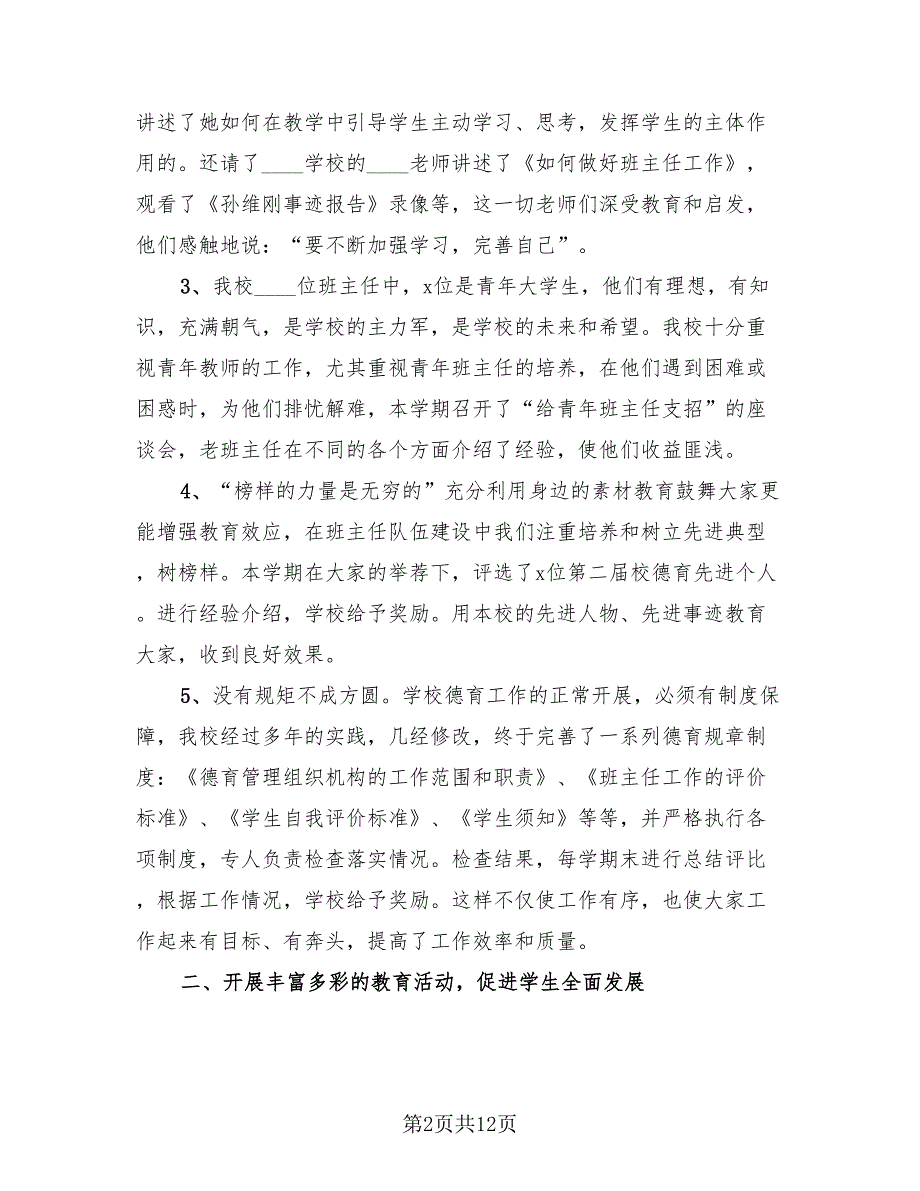 讲述了她如何在教学中引导学生主动学习、思考，发挥学生的主体作
用的。还请了____学校的____老师讲述了《如何做好班主任工作》，
观看了《孙维刚事迹报告》录像等，这一切老师们深受教育和启发，
他们感触地说：“要不断加强学习，完善自己”。
3、我校____位班主任中，x位是青年大学生，他们有理想，有知
识，充满朝气，是学校的主力军，是学校的未来和希望。我校十分重
视青年教师的工作，尤其重视青年班主任的培养，在他们遇到困难或
困惑时，为他们排忧解难，本学期召开了“给青年班主任支招”的座
谈会，老班主任在不同的各个方面介绍了经验，使他们收益匪浅。
4、“榜样的力量是无穷的”充分利用身边的素材教育鼓舞大家更
能增强教育效应，在班主任队伍建设中我们注重培养和树立先进典型
，树榜样。本学期在大家的举荐下，评选了x位第二届校德育先进个人
。进行经验介绍，学校给予奖励。用本校的先进人物、先进事迹教育
大家，收到良好效果。
5、没有规矩不成方圆。学校德育工作的正常开展，必须有制度保
障，我校经过多年的实践，几经修改，终于完善了一系列德育规章制
度：《德育管理组织机构的工作范围和职责》、《班主任工作的评价
标准》、《学生自我评价标准》、《学生须知》等等，并严格执行各
项制度，专人负责检查落实情况。检查结果，每学期末进行总结评比
，根据工作情况，学校给予奖励。这样不仅使工作有序，也使大家工
作起来有目标、有奔头，提高了工作效率和质量。
二、开展丰富多彩的教育活动，促进学生全面发展
第2页共12页